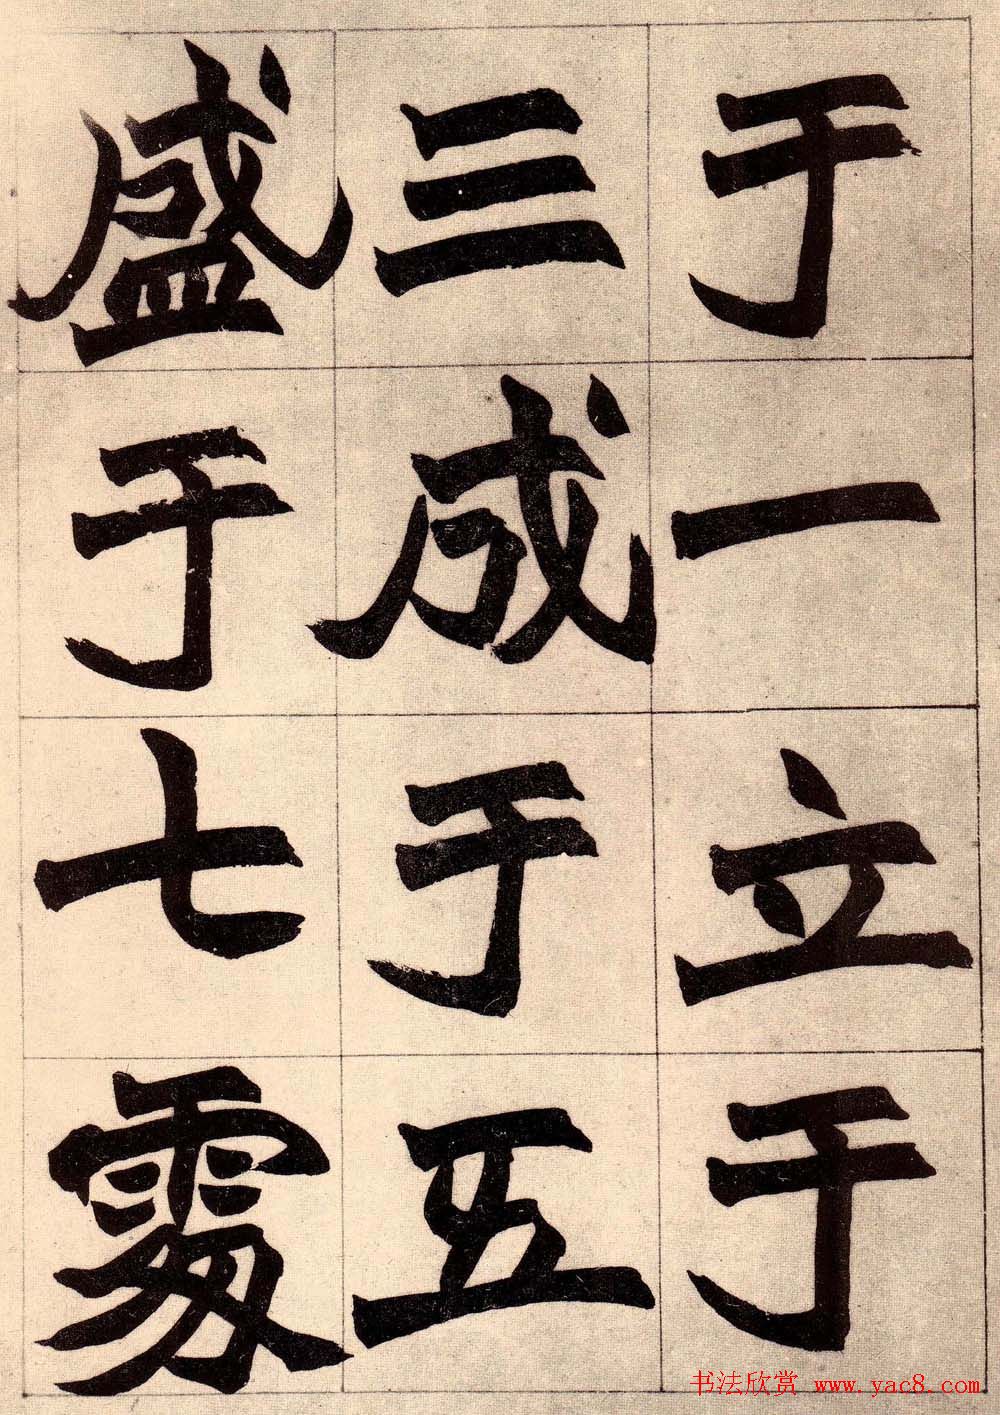 于一立于
三成于五
盛于七處
书法欣赏 www.yac8.com